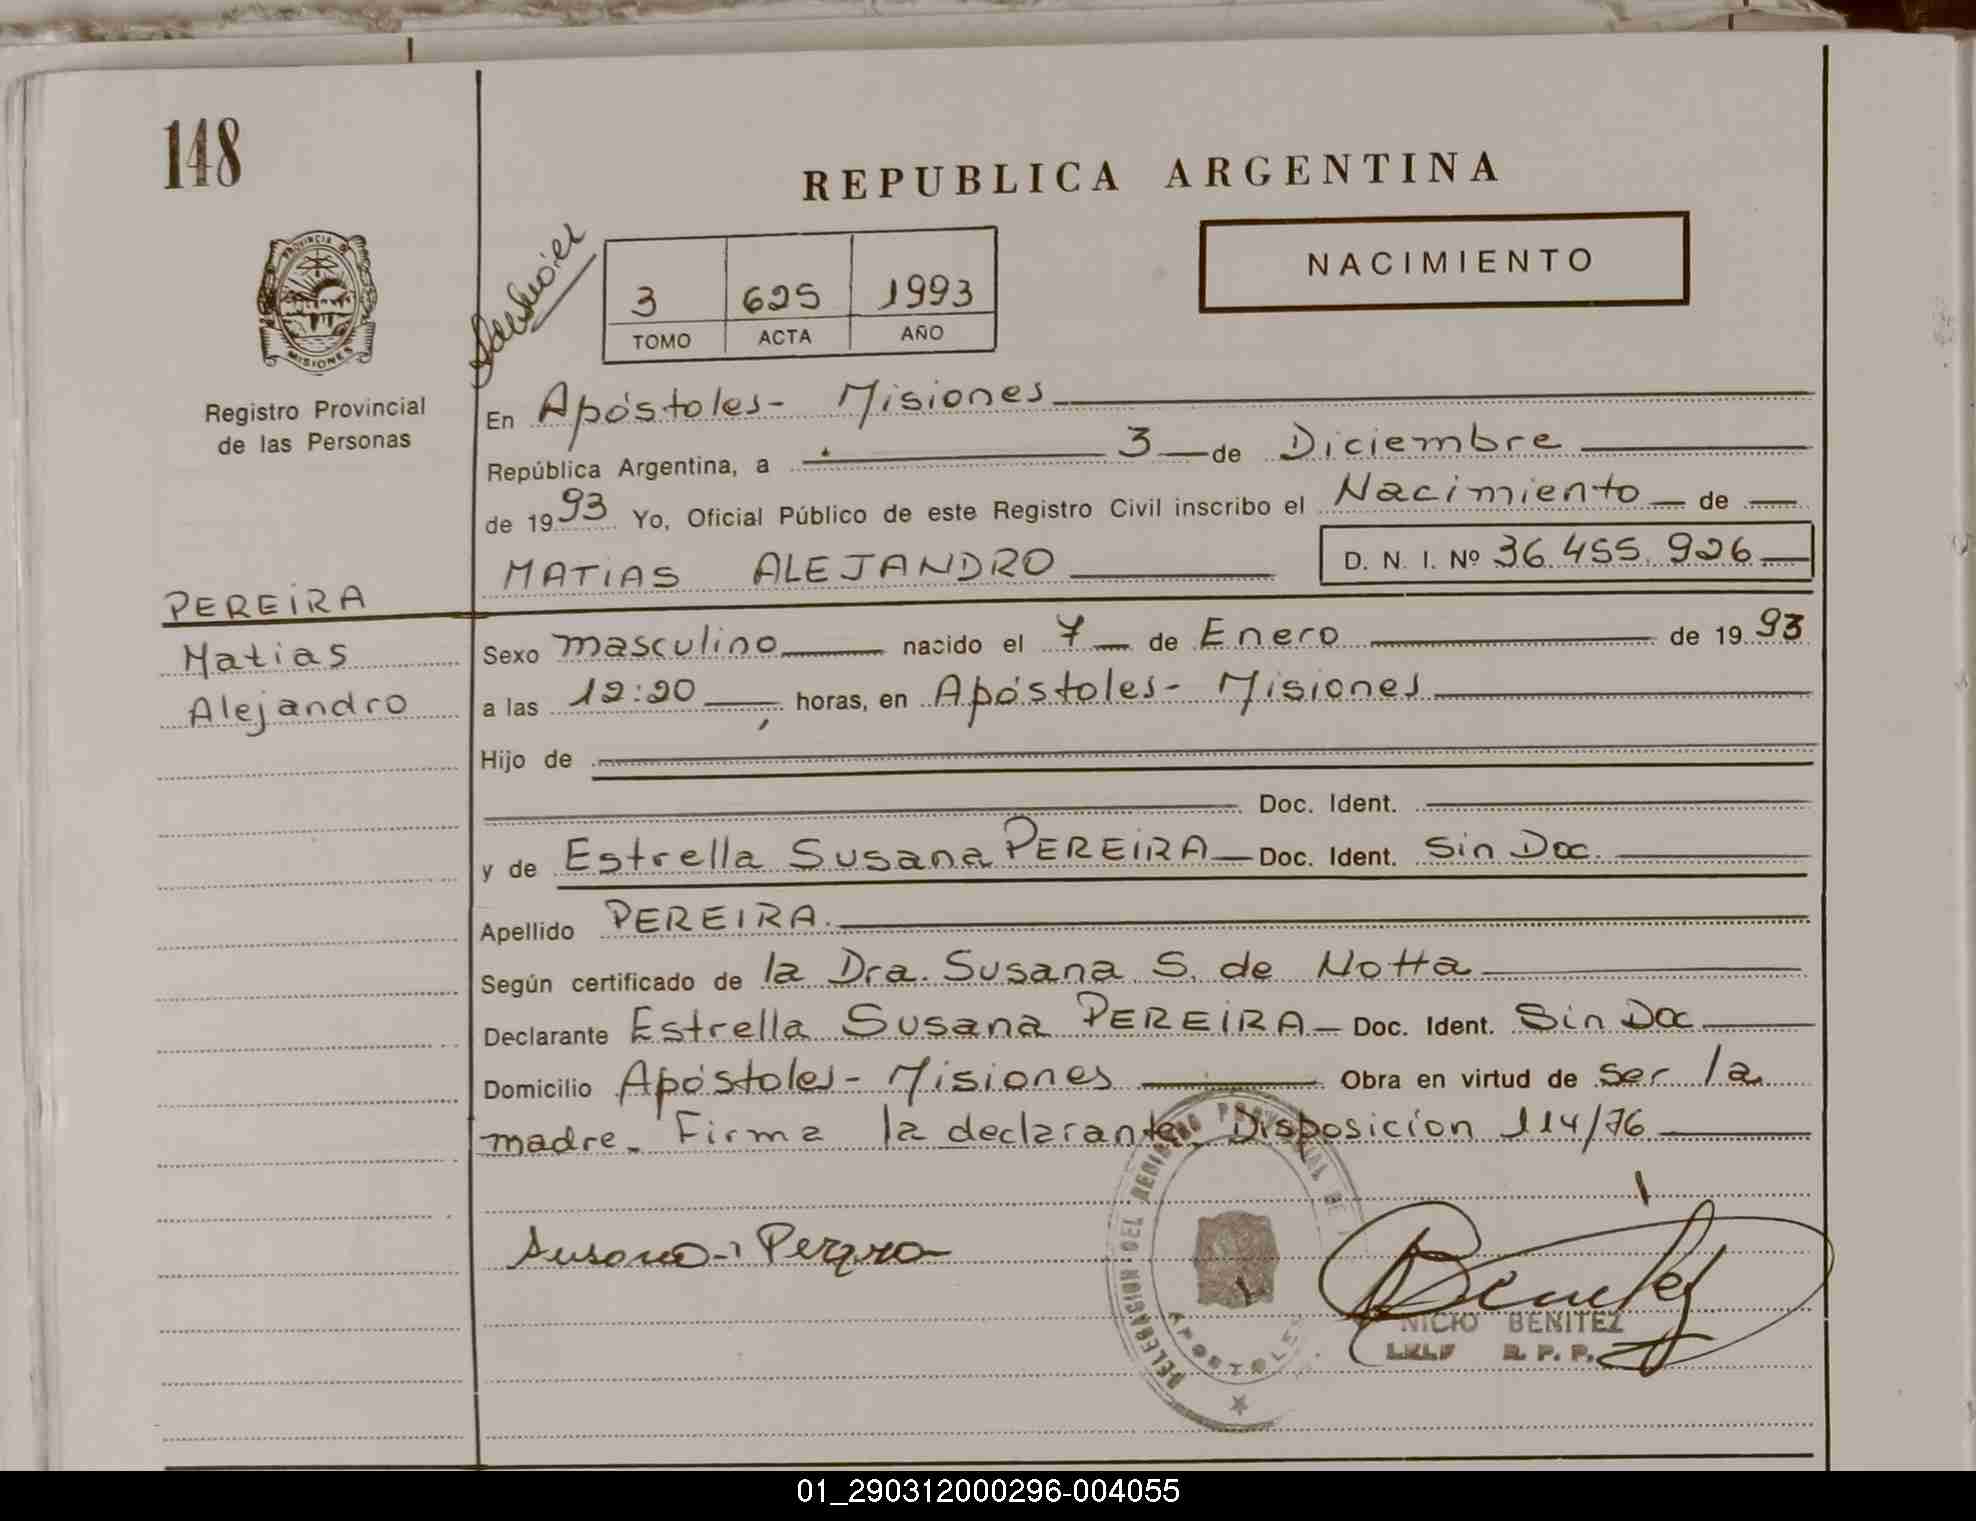 148
REPUBLICA ARGENTINA
NACIMIENTO
3 625 1993
TOMO ACTA AÑO
PROVINCIA DE
MISIONES
Registro Provincial
de las Personas
En Apóstoles- Misiones
República Argentina, a 3 de Diciembre
de 1993 Yo, Oficial Público de este Registro Civil inscribo el Nacimiento de
MATIAS ALEJANDRO D. N. I. Nº 36.455.926
PEREIRA
Matias
Alejandro
Sexo masculino nacido el 7 de Enero de 1993
a las 12:20, horas, en Apóstoles- Misiones
Hijo de
Doc. Ident.
y de Estrella Susana PEREIRA Doc. Ident. Sin Doc.
Apellido PEREIRA.
Según certificado de la Dra. Susana S. de Notta
Declarante Estrella Susana PEREIRA Doc. Ident. Sin Doc
Domicilio Apóstoles- Misiones Obra en virtud de ser la
madre. Firma la declarante. Disposición 114/76
DELEGACION DEL REGISTRO PROVINCIAL DE
APOSTOLES
Benitez
NICIO BENITEZ
R. P. P.
01_290312000296-004055